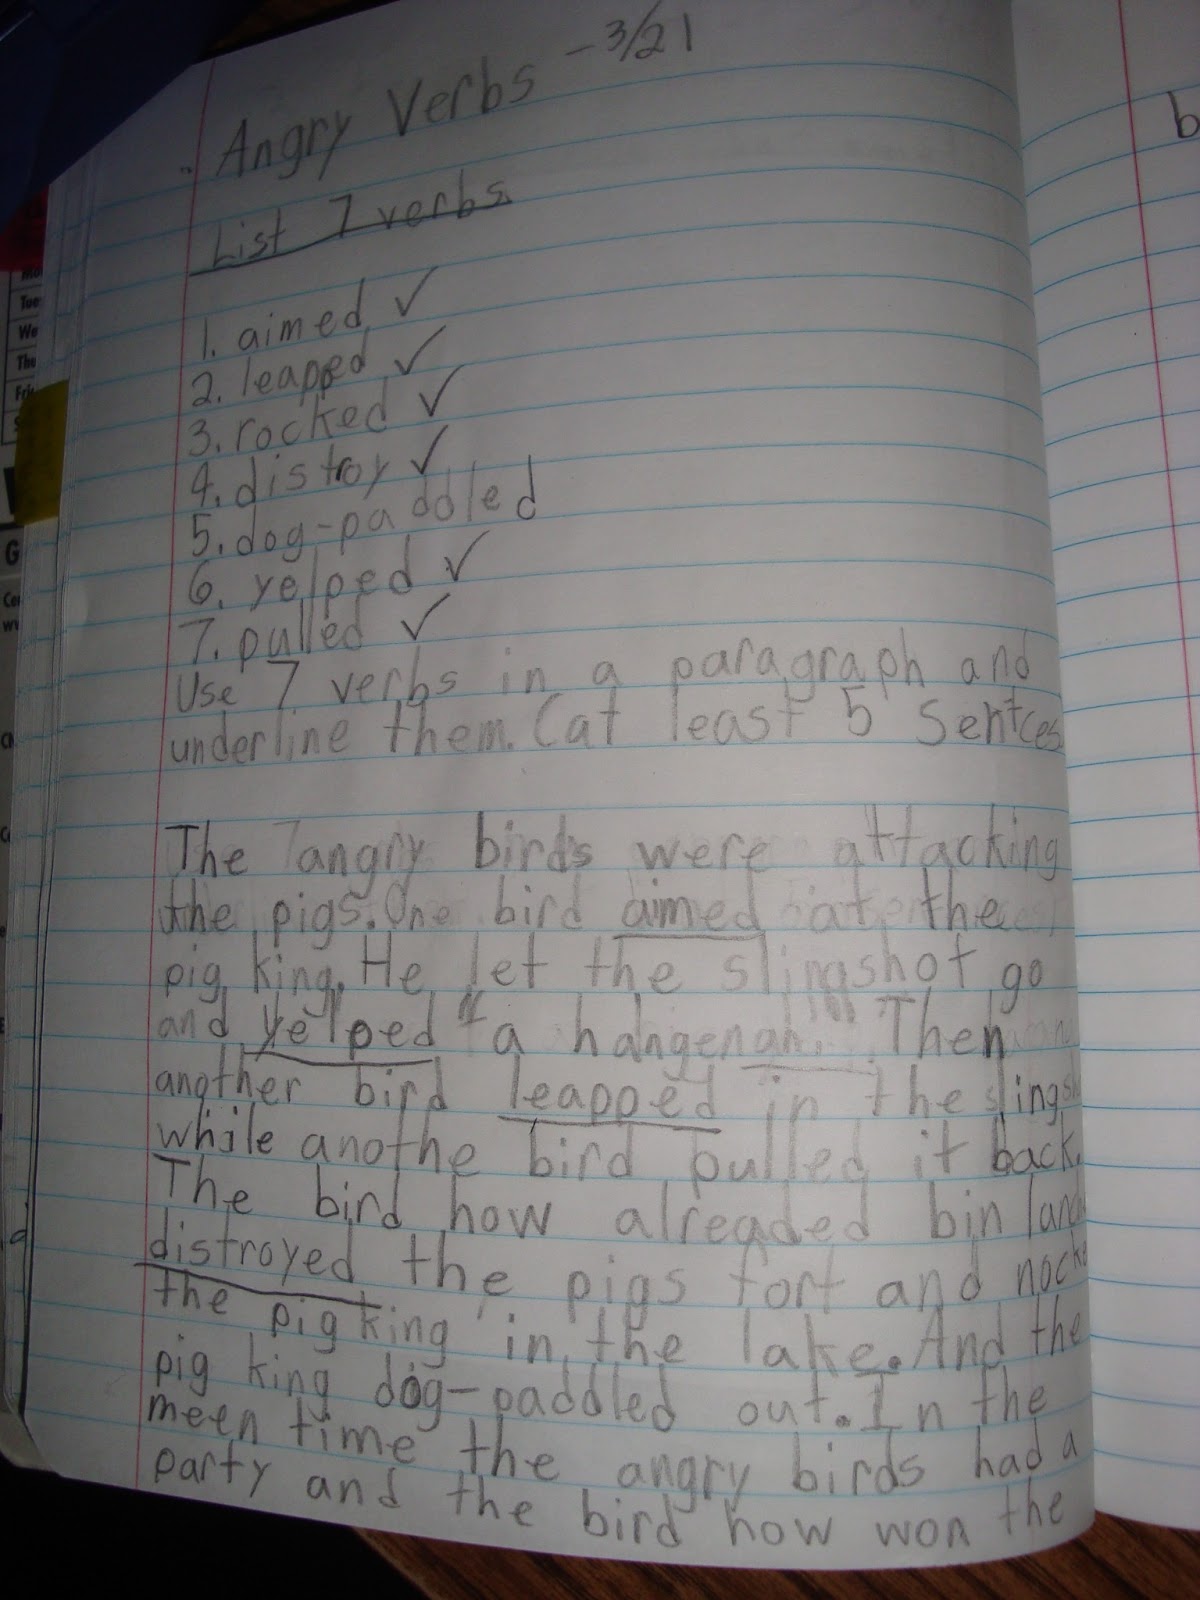 Angry Verbs - 3/21
List 7 verbs
1. aimed ✓
2. leapped ✓
3. rocked ✓
4. distroy ✓
5. dog-paddled
6. yelped ✓
7. pulled ✓
Use 7 verbs in a paragraph and
underline them. (at least 5 Sentces
The angry birds were attacking
the pigs. One bird aimed at the
pig king. He let the slingshot go
and yelped "a hangenah." Then
another bird leapped in the
while anothe bird pulled it back.
The bird how alreaded bin
distroyed the pigs fort and
the pig king in the lake. And the
pig king dog-paddled out. In the
meen time the angry birds had a
party and the bird how won the
b
Tue
We
The
Fri
G